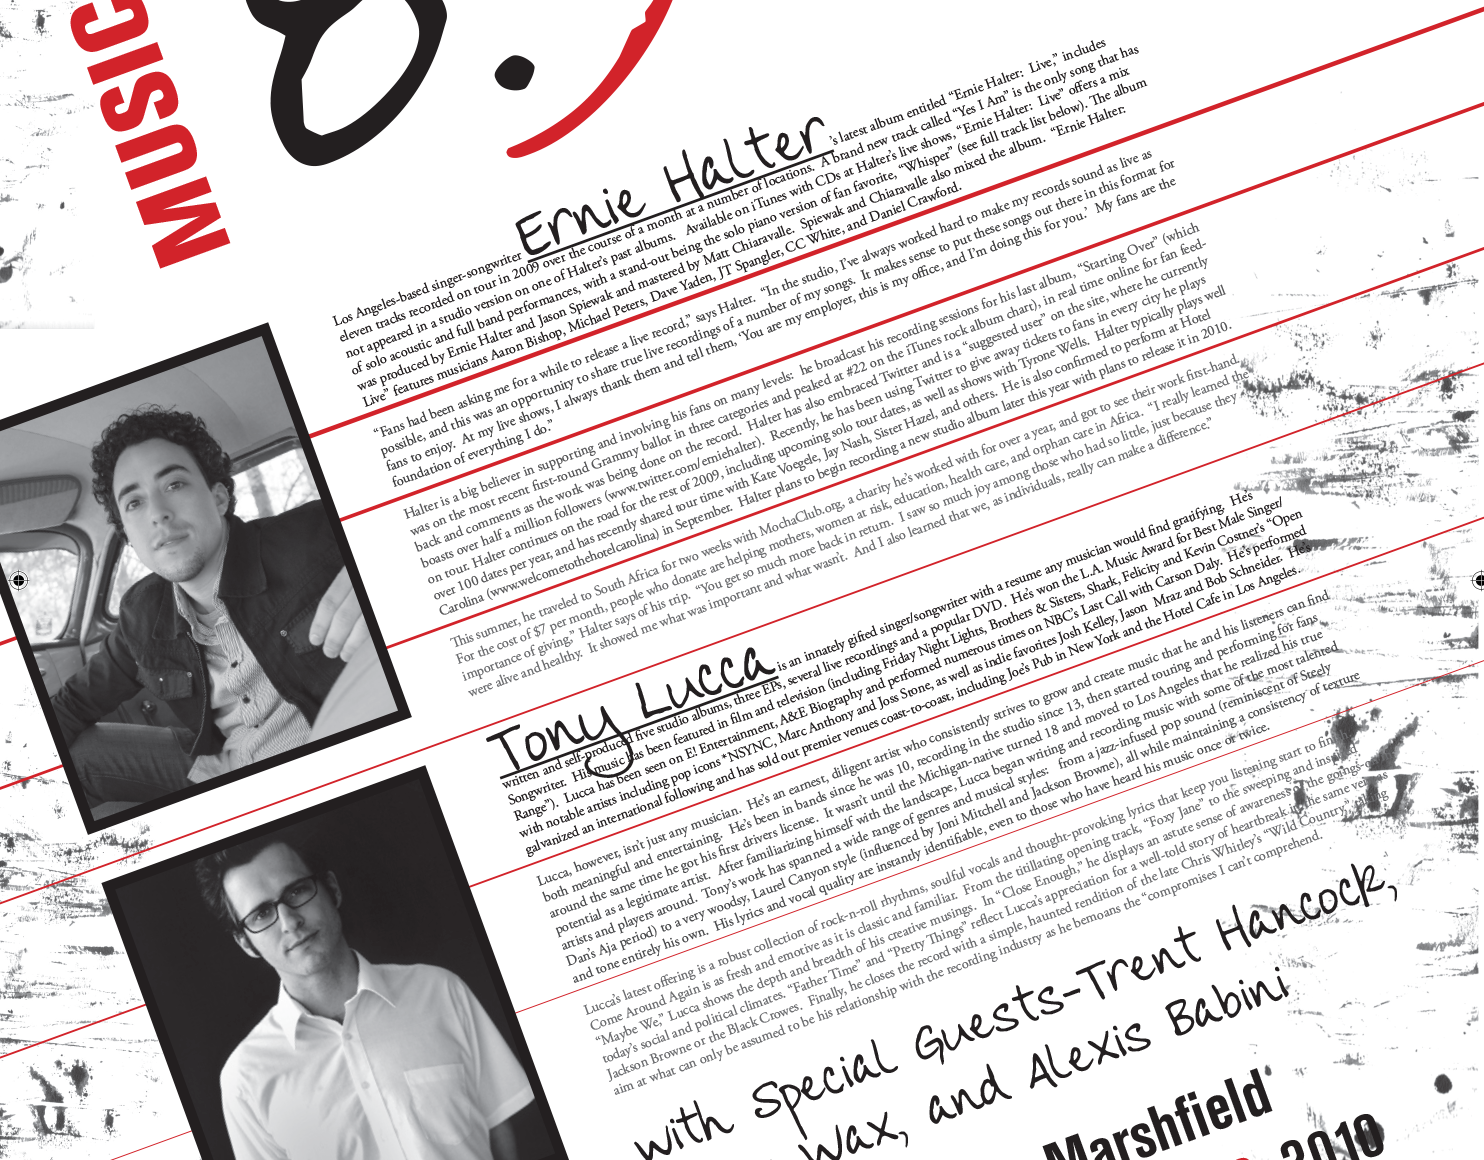 MUSIC
8.
Los Angeles-based singer-songwriter Ernie Halter's latest album entitled “Ernie Halter:  Live,” includes
eleven tracks recorded on tour in 2009 over the course of a month at a number of locations.  A brand new track called “Yes I Am” is the only song that has
not appeared in a studio version on one of Halter's past albums.  Available on iTunes with CDs at Halter's live shows, “Ernie Halter:  Live” offers a mix
of solo acoustic and full band performances, with a stand-out being the solo piano version of fan favorite, “Whisper” (see full track list below). The album
was produced by Ernie Halter and Jason Spiewak and mastered by Matt Chiaravalle.  Spiewak and Chiaravalle also mixed the album.  “Ernie Halter:
Live” features musicians Aaron Bishop, Michael Peters, Dave Yaden, JT Spangler, CC White, and Daniel Crawford.
“Fans had been asking me for a while to release a live record,” says Halter.  “In the studio, I've always worked hard to make my records sound as live as
possible, and this was an opportunity to share true live recordings of a number of my songs.  It makes sense to put these songs out there in this format for
fans to enjoy.  At my live shows, I always thank them and tell them, ‘You are my employer, this is my office, and I'm doing this for you.’  My fans are the
foundation of everything I do.”
Halter is a big believer in supporting and involving his fans on many levels:  he broadcast his recording sessions for his last album, “Starting Over” (which
was on the most recent first-round Grammy ballot in three categories and peaked at #22 on the iTunes rock album chart), in real time online for fan feed-
back and comments as the work was being done on the record.  Halter has also embraced Twitter and is a “suggested user” on the site, where he currently
boasts over half a million followers (www.twitter.com/erniehalter).  Recently, he has been using Twitter to give away tickets to fans in every city he plays
on tour. Halter continues on the road for the rest of 2009, including upcoming solo tour dates, as well as shows with Tyrone Wells.  Halter typically plays well
over 100 dates per year, and has recently shared tour time with Kate Voegele, Jay Nash, Sister Hazel, and others.  He is also confirmed to perform at Hotel
Carolina (www.welcometothehotelcarolina) in September.  Halter plans to begin recording a new studio album later this year with plans to release it in 2010.
This summer, he traveled to South Africa for two weeks with MochaClub.org, a charity he's worked with for over a year, and got to see their work first-hand.
For the cost of $7 per month, people who donate are helping mothers, women at risk, education, health care, and orphan care in Africa.  “I really learned the
importance of giving,” Halter says of his trip.  “You get so much more back in return.  I saw so much joy among those who had so little, just because they
were alive and healthy.  It showed me what was important and what wasn't.  And I also learned that we, as individuals, really can make a difference.”
Tony Lucca is an innately gifted singer/songwriter with a resume any musician would find gratifying. Hes
written and self-produced five studio albums, three EPs, several live recordings and a popular DVD.  He's won the L.A. Music Award for Best Male Singer/
Songwriter.  His music has been featured in film and television (including Friday Night Lights, Brothers & Sisters, Shark, Felicity and Kevin Costner's “Open
Range”).  Lucca has been seen on E! Entertainment, A&E Biography and performed numerous times on NBC's Last Call with Carson Daly.  He's performed
with notable artists including pop icons *NSYNC, Marc Anthony and Joss Stone, as well as indie favorites Josh Kelley, Jason  Mraz and Bob Schneider.  He's
galvanized an international following and has sold out premier venues coast-to-coast, including Joe's Pub in New York and the Hotel Cafe in Los Angeles.
Lucca, however, isn't just any musician.  He's an earnest, diligent artist who consistently strives to grow and create music that he and his listeners can find
both meaningful and entertaining.  He's been in bands since he was 10, recording in the studio since 13, then started touring and performing for fans
around the same time he got his first drivers license.  It wasn't until the Michigan-native turned 18 and moved to Los Angeles that he realized his true
potential as a legitimate artist.  After familiarizing himself with the landscape, Lucca began writing and recording music with some of the most talented
artists and players around.  Tony's work has spanned a wide range of genres and musical styles:  from a jazz-infused pop sound (reminiscent of Steely
Dan's Aja period) to a very woodsy, Laurel Canyon style (influenced by Joni Mitchell and Jackson Browne), all while maintaining a consistency of texture
and tone entirely his own.  His lyrics and vocal quality are instantly identifiable, even to those who have heard his music once or twice.
Lucca's latest offering is a robust collection of rock-n-roll rhythms, soulful vocals and thought-provoking lyrics that keep you listening start to
Come Around Again is as fresh and emotive as it is classic and familiar.  From the titillating opening track, “Foxy Jane” to the sweeping and
“Maybe We,” Lucca shows the depth and breadth of his creative musings.  In “Close Enough,” he displays an astute sense of awareness of the
today's social and political climates. “Father Time” and “Pretty Things” reflect Lucca's appreciation for a well-told story of heartbreak in the same vein as
Jackson Browne or the Black Crowes.  Finally, he closes the record with a simple, haunted rendition of the late Chris Whitley's “Wild Country”, taking
aim at what can only be assumed to be his relationship with the recording industry as he bemoans the “compromises I can't comprehend.
with Special Guests-Trent Hancock,
Wax, and Alexis Babini
Marshfield
2010